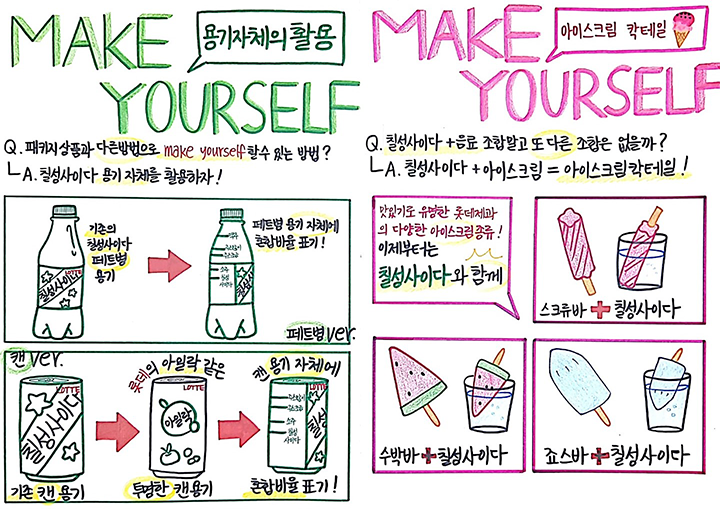 MAKE
용기자체의 활용
YOURSELF
Q. 패키지 상품과 다른방법으로 make yourself 할수 있는 방법?
A. 칠성사이다 용기 자체를 활용하자!
기존의
칠성사이다
페트병
용기
LOTTE
칠성사이다
페트병 용기 자체에
혼합비율 표기!
소주
칠성
사이다
페트병 ver.
캔 ver.
LOTTE
칠성사이다
기존 캔 용기
롯데의 아일락 같은
LOTTE
아일락
투명한 캔용기
캔 용기 자체에
LOTTE
소주
칠성
사이다
칠성
혼합비율 표기!
MAKE
아이스크림 칵테일
YOURSELF
Q. 칠성사이다 + 음료 조합말고 또 다른 조합은 없을까?
A. 칠성사이다 + 아이스크림 = 아이스크림칵테일!
맛있기로 유명한 롯데제과
의 다양한 아이스크림종류!
이제부터는
칠성사이다와 함께
스크류바 + 칠성사이다
수박바 + 칠성사이다
죠스바 + 칠성사이다